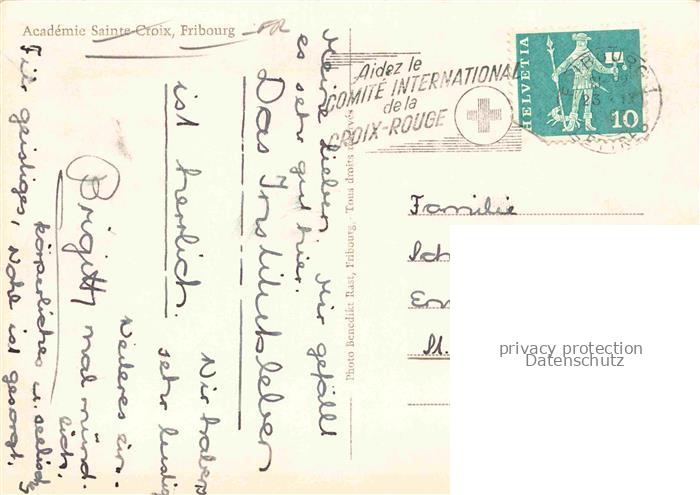 Académie Sainte-Croix, Fribourg - FR
Meine Lieben, Mir gefällt
es sehr gut hier.
Das Institutsleben
ist herrlich.
Wir haben
sehr lustig
Weiteres ein-
mal münd-
lich.
Brigitt
Für geistiges, körperliches u. seelisches
Wohl ist gesorgt.
Photo Benedikt Rast, Fribourg. Tous droits réservés
Aidez le
COMITÉ INTERNATIONAL
de la
CROIX-ROUGE
HELVETIA
10
Familie
privacy protection
Datenschutz